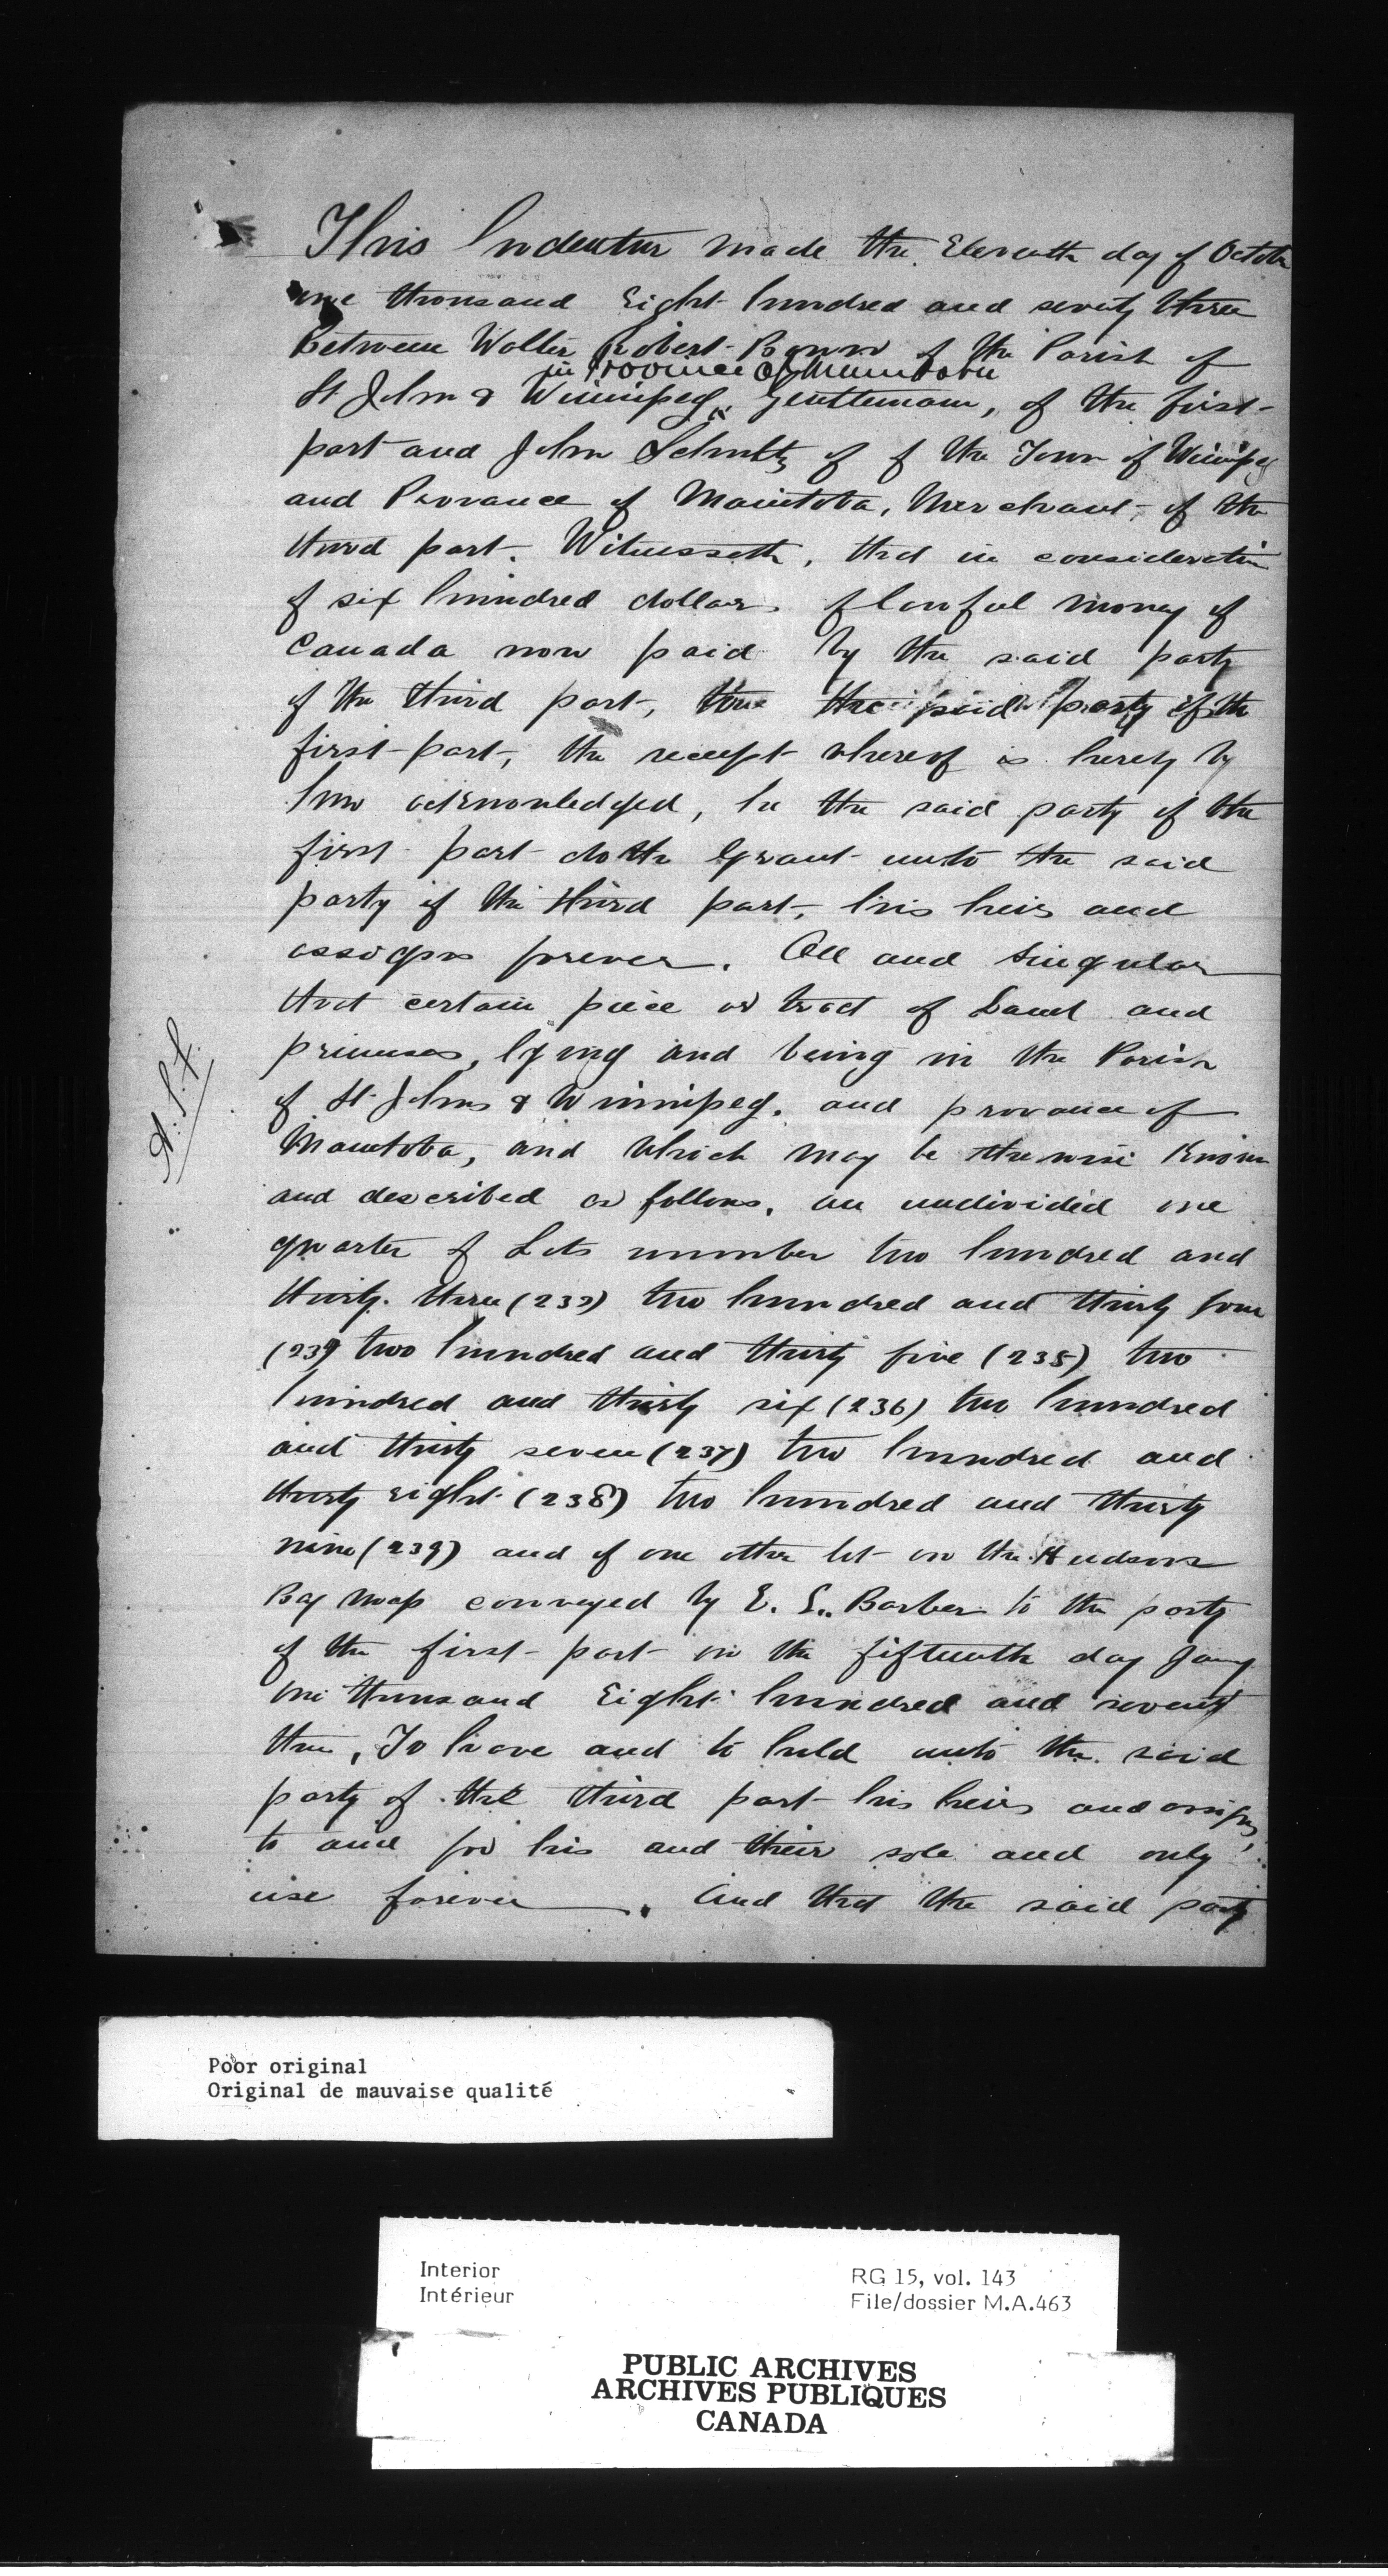 This Indenture made the Eleventh day of October
one thousand Eight hundred and seventy three
Between Walter Robert Bown of the Parish of
in Province of Manitoba
St John & Winnipeg, Gentleman, of the first
part and John Schultz of of the Town of Winnipeg
and Provance of Manitoba, Merchant, of the
third part. Witnesseth, that in consideration
of six hundred dollars of lawful money of
Canada now paid by the said party
of the third part, the said party of the
first part, the receipt whereof is hereby by
him acknowledged, he the said party of the
first part doth Grant unto the said
party of the third part, his heirs and
assigns forever. All and Singular
that certain piece or tract of Land and
premises, lying and being in the Parish
of St Johns & Winnipeg. and provance of
Manitoba, and which may be otherwise Known
and described as follows, an undivided one
quarter of Lots number two hundred and
thirty. three (233) two hundred and thirty four
(234) two hundred and thirty five (235) two
hundred and thirty six (236) two hundred
and thirty seven (237) two hundred and
thirty eight (238) two hundred and thirty
nine (239) and of one other lot on the Hudsons
Bay map conveyed by E. L. Barber to the party
of the first part on the fifteenth day Jany
one thousand Eight hundred and seventy
three, To have and to hold unto the said
party of the third part his heirs and assigns,
to and for his and their sole and only
use forever. And that the said party
Poor original
Original de mauvaise qualité
Interior
Intérieur
RG 15, vol. 143
File/dossier M.A.463
PUBLIC ARCHIVES
ARCHIVES PUBLIQUES
CANADA